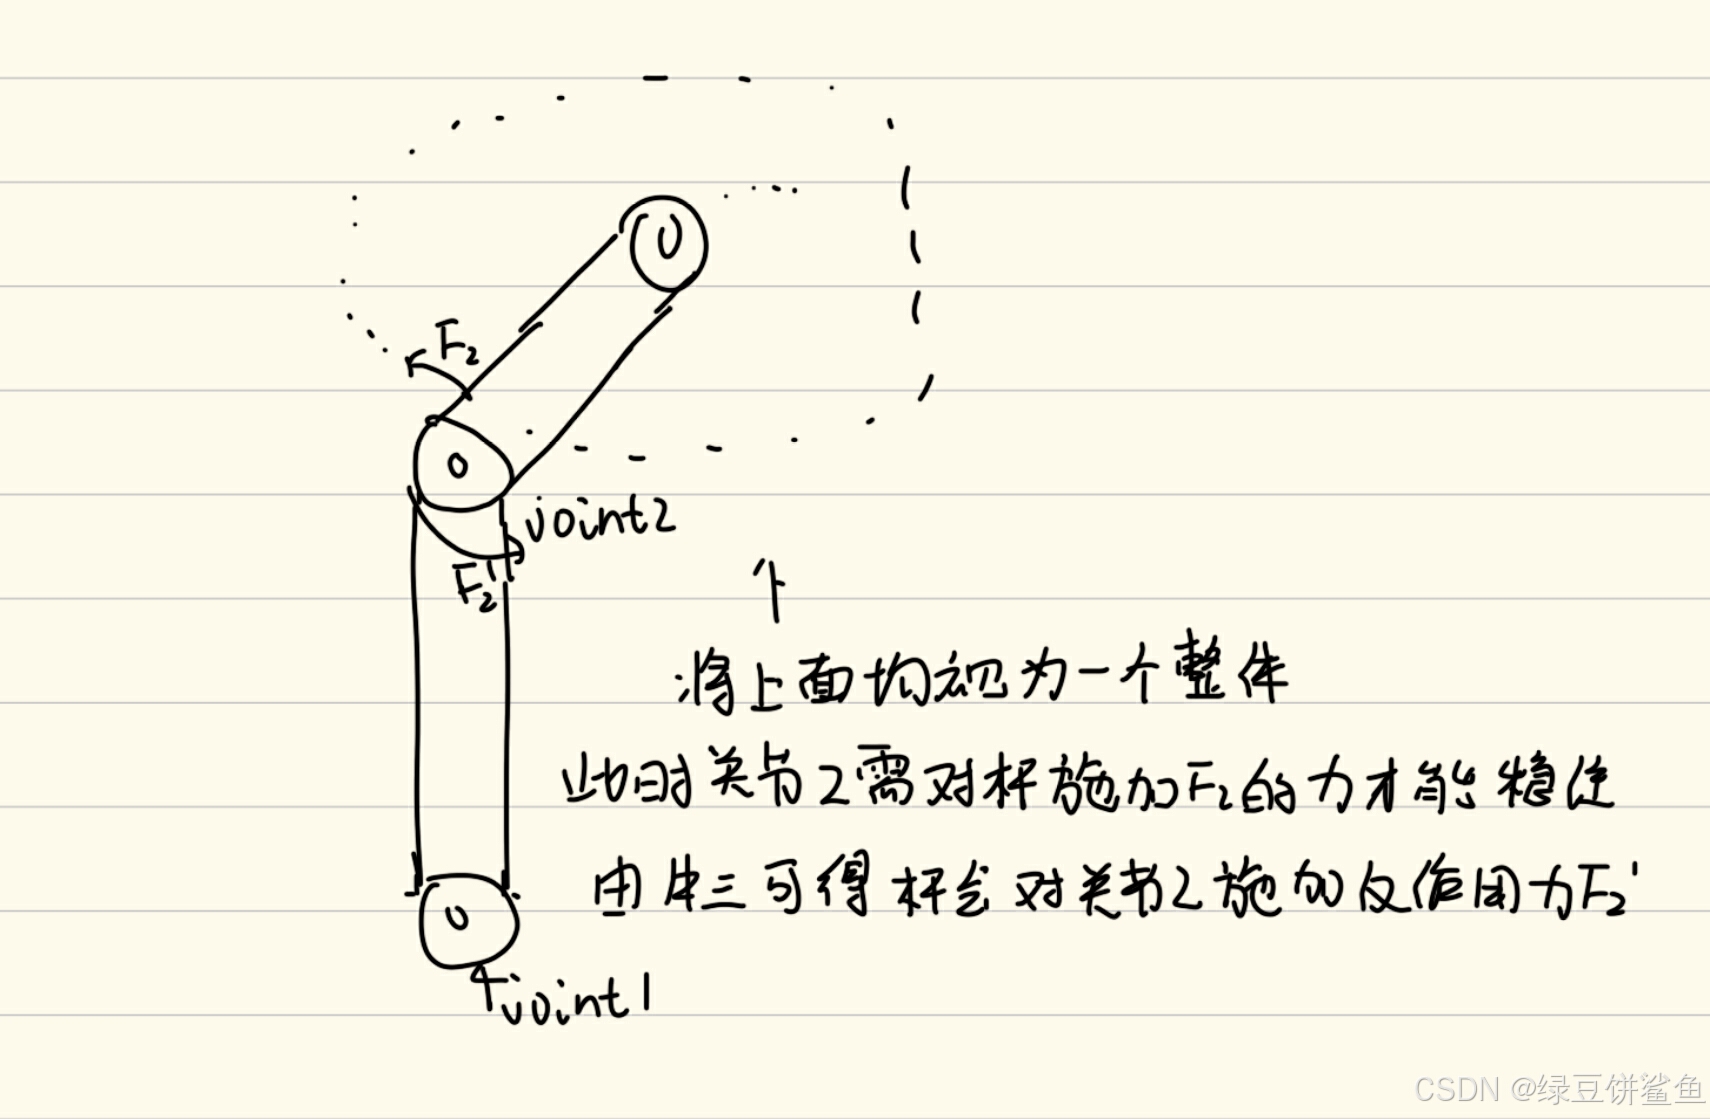 F₂
joint2
F₂'
将上面均视为一个整体
此时关节2需对杆施加F₂的力才能稳住
由牛三可得杆会对关节2施加反作用力F₂'
joint1
CSDN @绿豆饼鲨鱼